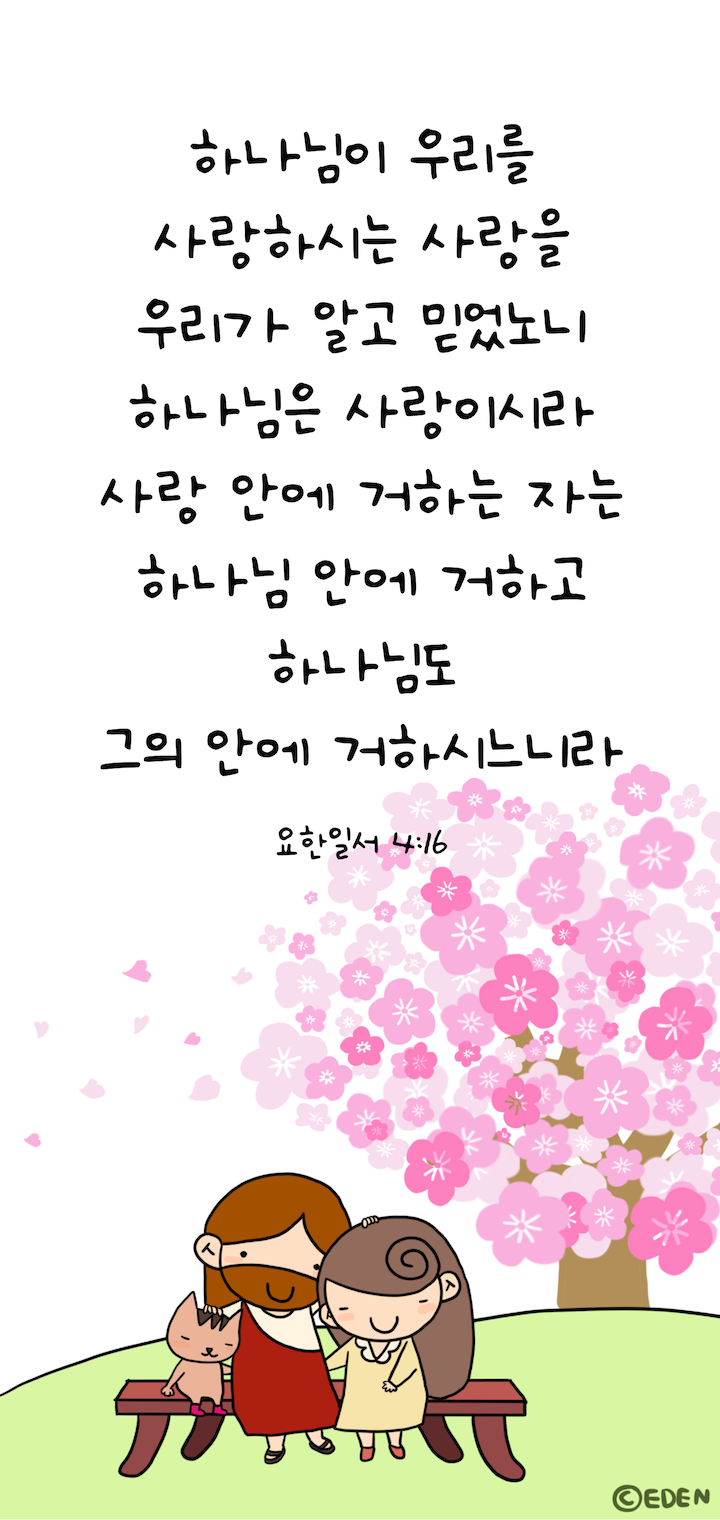 하나님이 우리를
사랑하시는 사랑을
우리가 알고 믿었노니
하나님은 사랑이시라
사랑 안에 거하는 자는
하나님 안에 거하고
하나님도
그의 안에 거하시느니라
요한일서 4:16
©EDEN